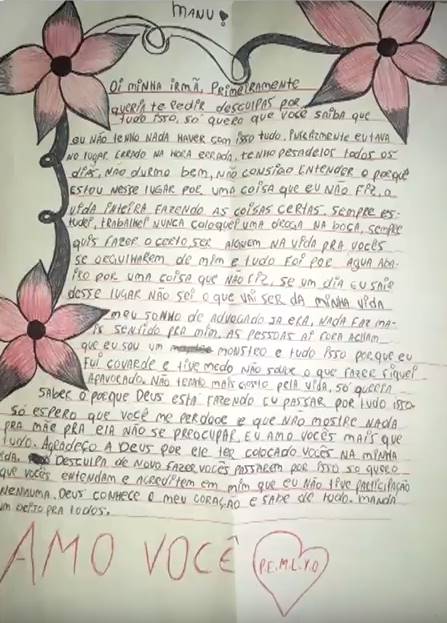 MANU
Oi MINHA IRMÃ, PRIMEIRAMENTE
QUERIA te PEDIR DESCULPAS POR
tudo ISSO, SÓ QUERO QUE VOCÊ SAIBA QUE
EU NÃO TENHO NADA HAVER COM ISSO TUDO, INFELIZMENTE EU TAVA
NO lUGAR ERRADO NA HORA ERRADA, TENHO PESADELOS TODOS OS
DIAS, NÃO DURMO BEM, NÃO CONSIGO ENTENDER O PORQUÊ
ESTOU NESSE LUGAR POR UMA COISA QUE EU NÃO FIZ, A
VIDA INTEIRA FAZENDO AS COISAS CERTAS, SEMPRE ES-
TUDEI, TRABALHEI NUNCA COLOQUEI UMA DROGA NA BOCA, SEMPRE
QUIS FAZER O CERTO, SER ALGUEM NA VIDA PRA VOCÊS
SE ORGULHAREM DE MIM E TUDO FOI POR AGUA ABA-
IXO POR UMA COISA QUE NÃO FIZ, SE UM DIA EU SAIR
DESSE LUGAR NÃO SEI O QUE VAI SER DA MINHA VIDA
MEU SONHO DE ADVOGADO JA ERA, NADA FAZ MA-
IS SENTIDO PRA MIM, AS PESSOAS AI FORA ACHAM
QUE EU SOU UM MONSTRO E TUDO ISSO PORQUE EU
FUI COVARDE E TIVE MEDO NÃO SOUBE O QUE FAZER FIQUEI
APAVORADO. NÃO TENHO MAIS GOSTO PELA VIDA, SÓ QUERIA
SABER O PORQUE DEUS ESTÁ FAZENDO EU PASSAR POR TUDO ISSO.
SÓ ESPERO QUE VOCÊ ME PERDOE E QUE NÃO MOSTRE NADA
PRA MÃE PRA ELA NÃO SE PREOCUPAR, EU AMO VOCÊS MAIS QUE
TUDO. AGRADEÇO A DEUS POR ELE TER COLOCADO VOCÊS NA MINHA
VIDA. DESCULPA DE NOVO FAZER VOCÊS PASSAREM POR ISSO SÓ QUERO
QUE VOCÊS ENTENDAM E ACREDITEM EM MIM QUE EU NÃO TIVE PARTICIPAÇÃO
NENHUMA. DEUS CONHECE O MEU CORAÇÃO E SABE DE TUDO. MANDA
UM BEIJO PRA TODOS.
AMO VOCÊ